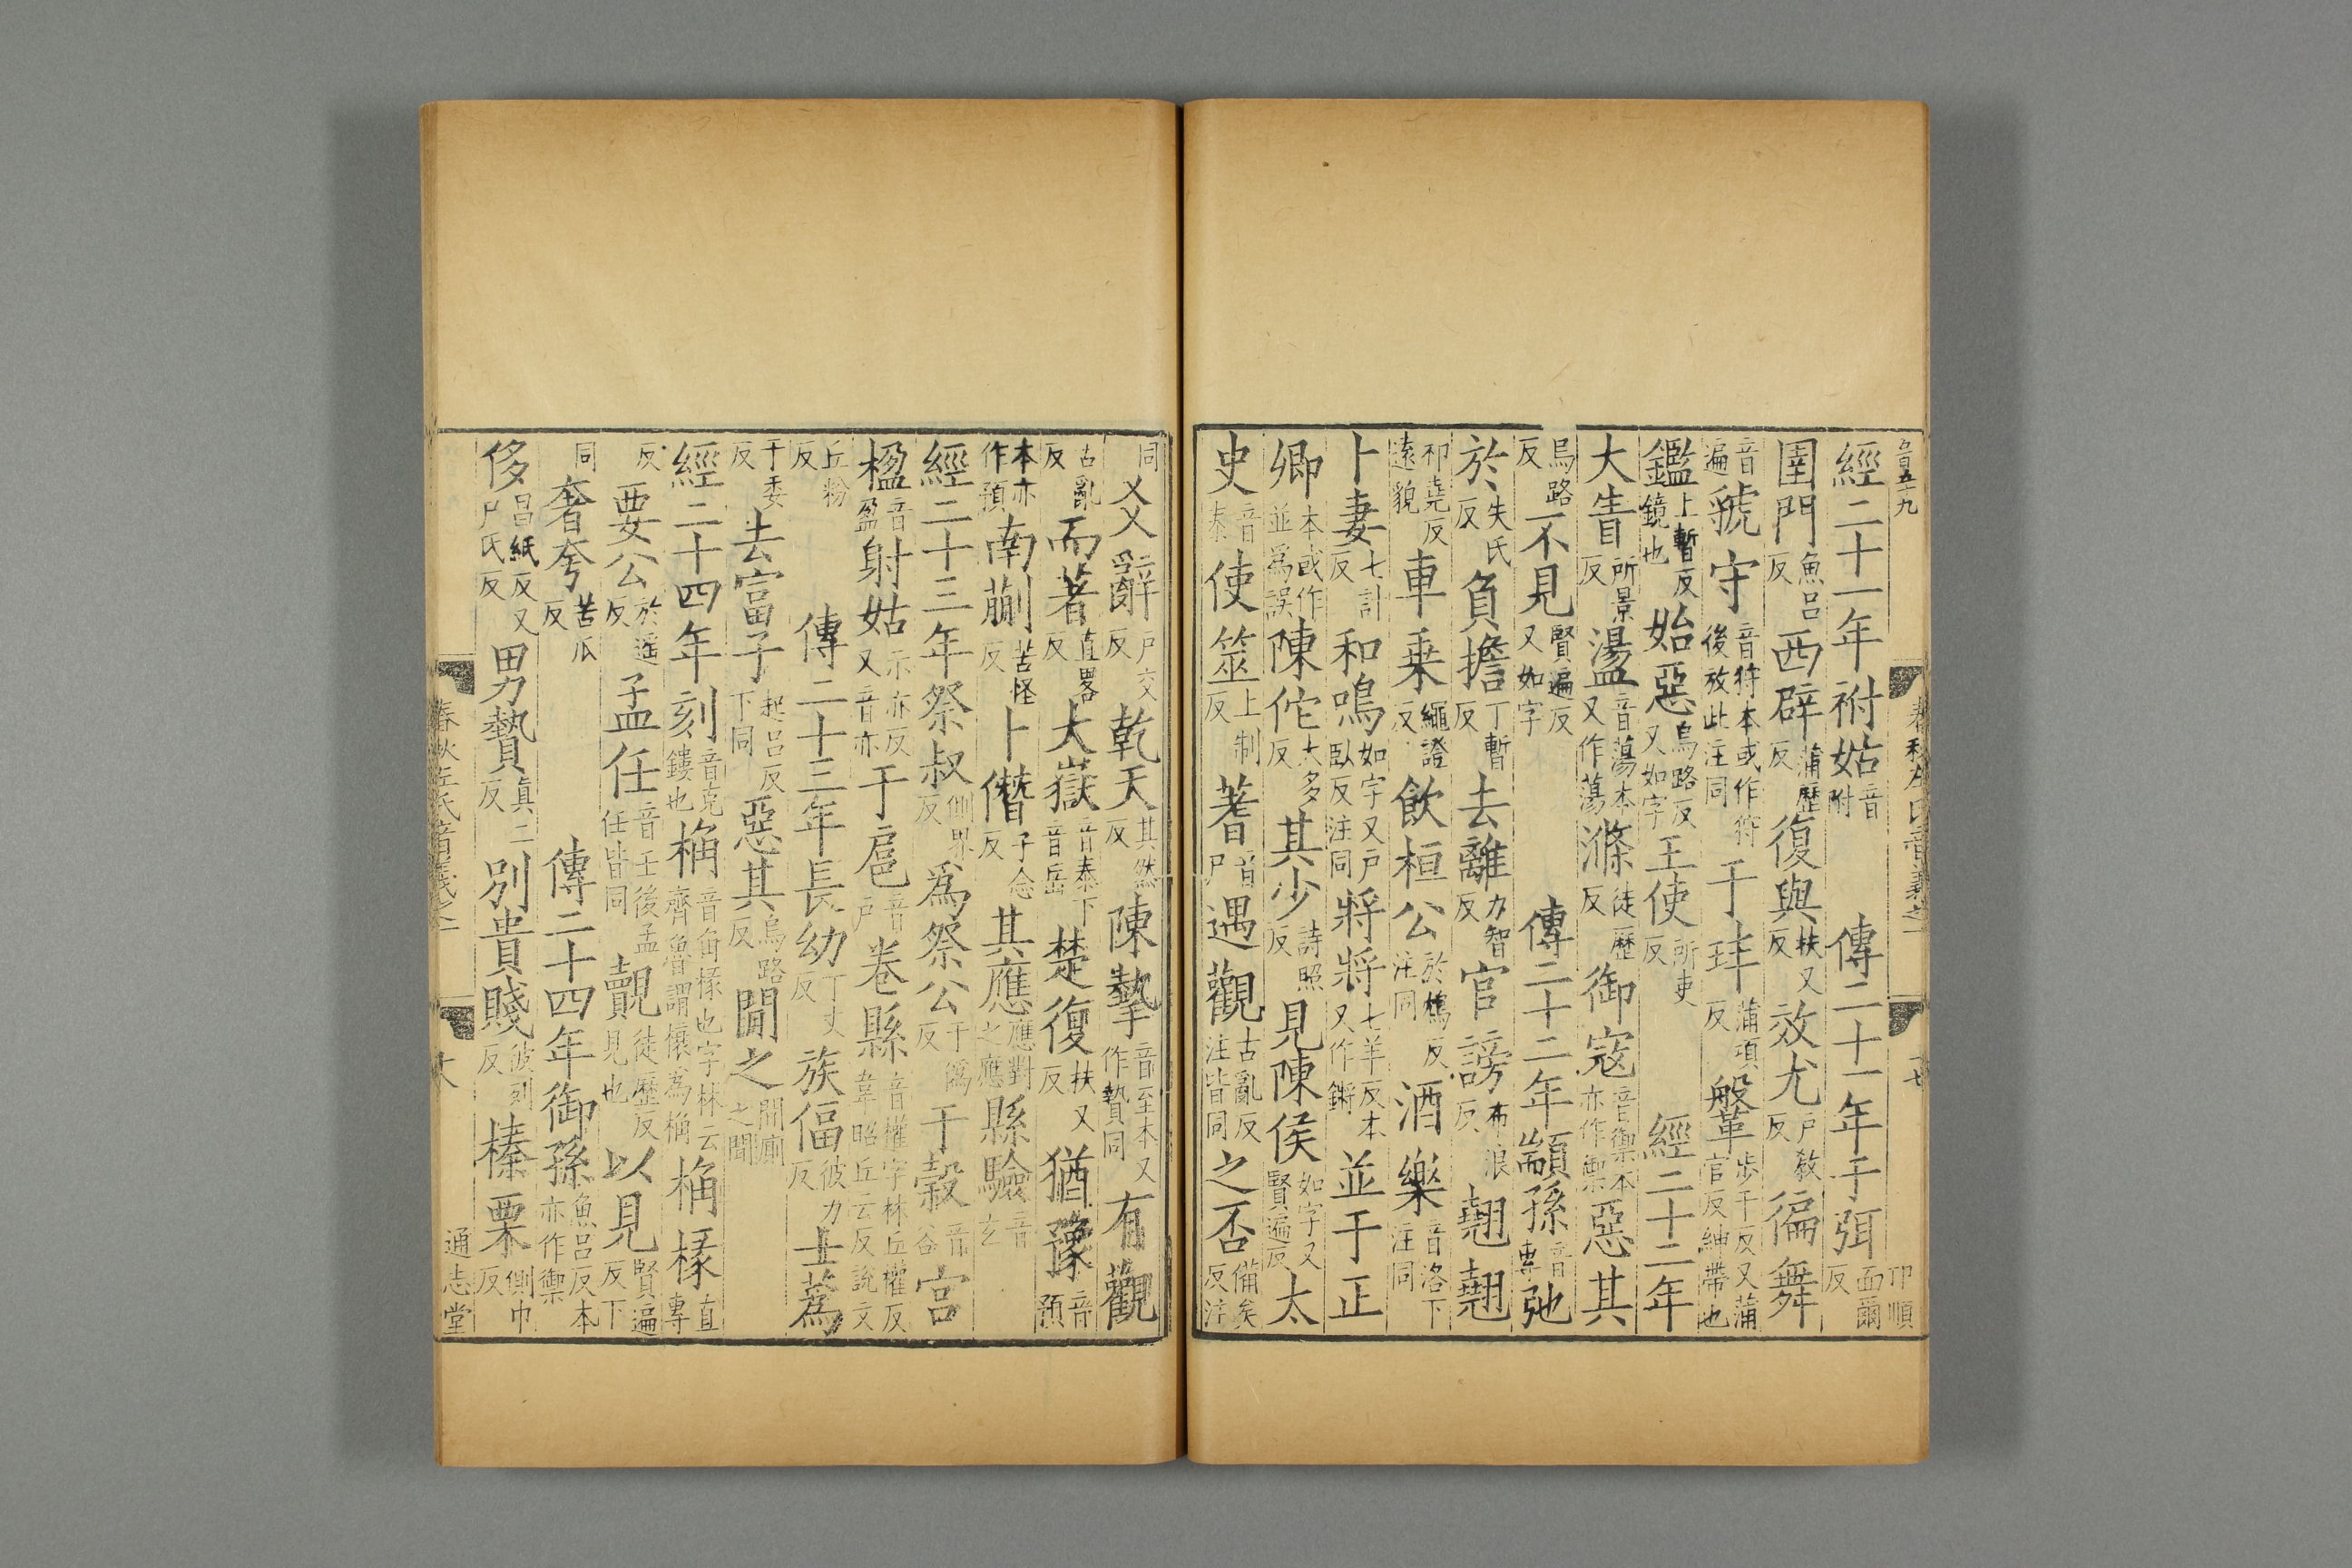 經二十一年祔姑音附 傳二十一年于弭面爾反
圉門魚呂反西辟蒲歷反復與扶又反效尤戶教反徧舞
音遍虢守音狩本或作狩後放此注同于玤蒲項反鞶步干反又蒲官反紳帶也
鑑上暫反鏡也始惡烏路反又如字王使所吏反 經二十二年
大眚所景反盪音蕩本又作蕩滌徒歷反御寇音禦本亦作禦惡其
烏路反不見賢遍反又如字 傳二十二年顓孫音專弛
於失氏反負擔丁暫反去離力智反官謗布浪反翹翹
祁堯反遠貌車乘繩證反飲桓公於鴆反注同酒樂音洛下注同
卜妻七計反和鳴如字又戶臥反注同將將七羊反本又作鏘並于正
卿本或作並為誤陳佗大多反其少詩照反見陳侯如字又賢遍反太
史音泰使筮上制反蓍音尸遇觀古亂反注皆同之否備矣反注
同爻辭戶交反乾天其然反陳摯音至本又作贄同有觀
古亂反而著直畧反大嶽音泰下音岳楚復扶又反猶豫音預
本亦作預南蒯苦怪反卜僭子念反其應應對之應縣驗音玄
經二十三年祭叔側界反為祭公于偽反于穀音谷宮
楹音盈射姑示亦反又音亦于扈音戶卷縣音權字林丘權反韋昭丘云反說文
丘粉反 傳二十三年長幼丁丈反族偪彼力反士蒍
于委反去富子起呂反下同惡其烏路反閒之閒廁之閒
經二十四年刻音克鏤也桷音角椽也字林云齊魯謂榱為桷桷椽直專
反要公於遥反孟任音壬後孟任皆同覿徒歷反見也以見賢遍反下
同奢夸苦瓜反 傳二十四年御孫魚呂反本亦作禦
侈昌紙反又尸氏反男贄真二反別貴賤彼列反榛栗側巾反
春秋左氏音義之二
通志堂